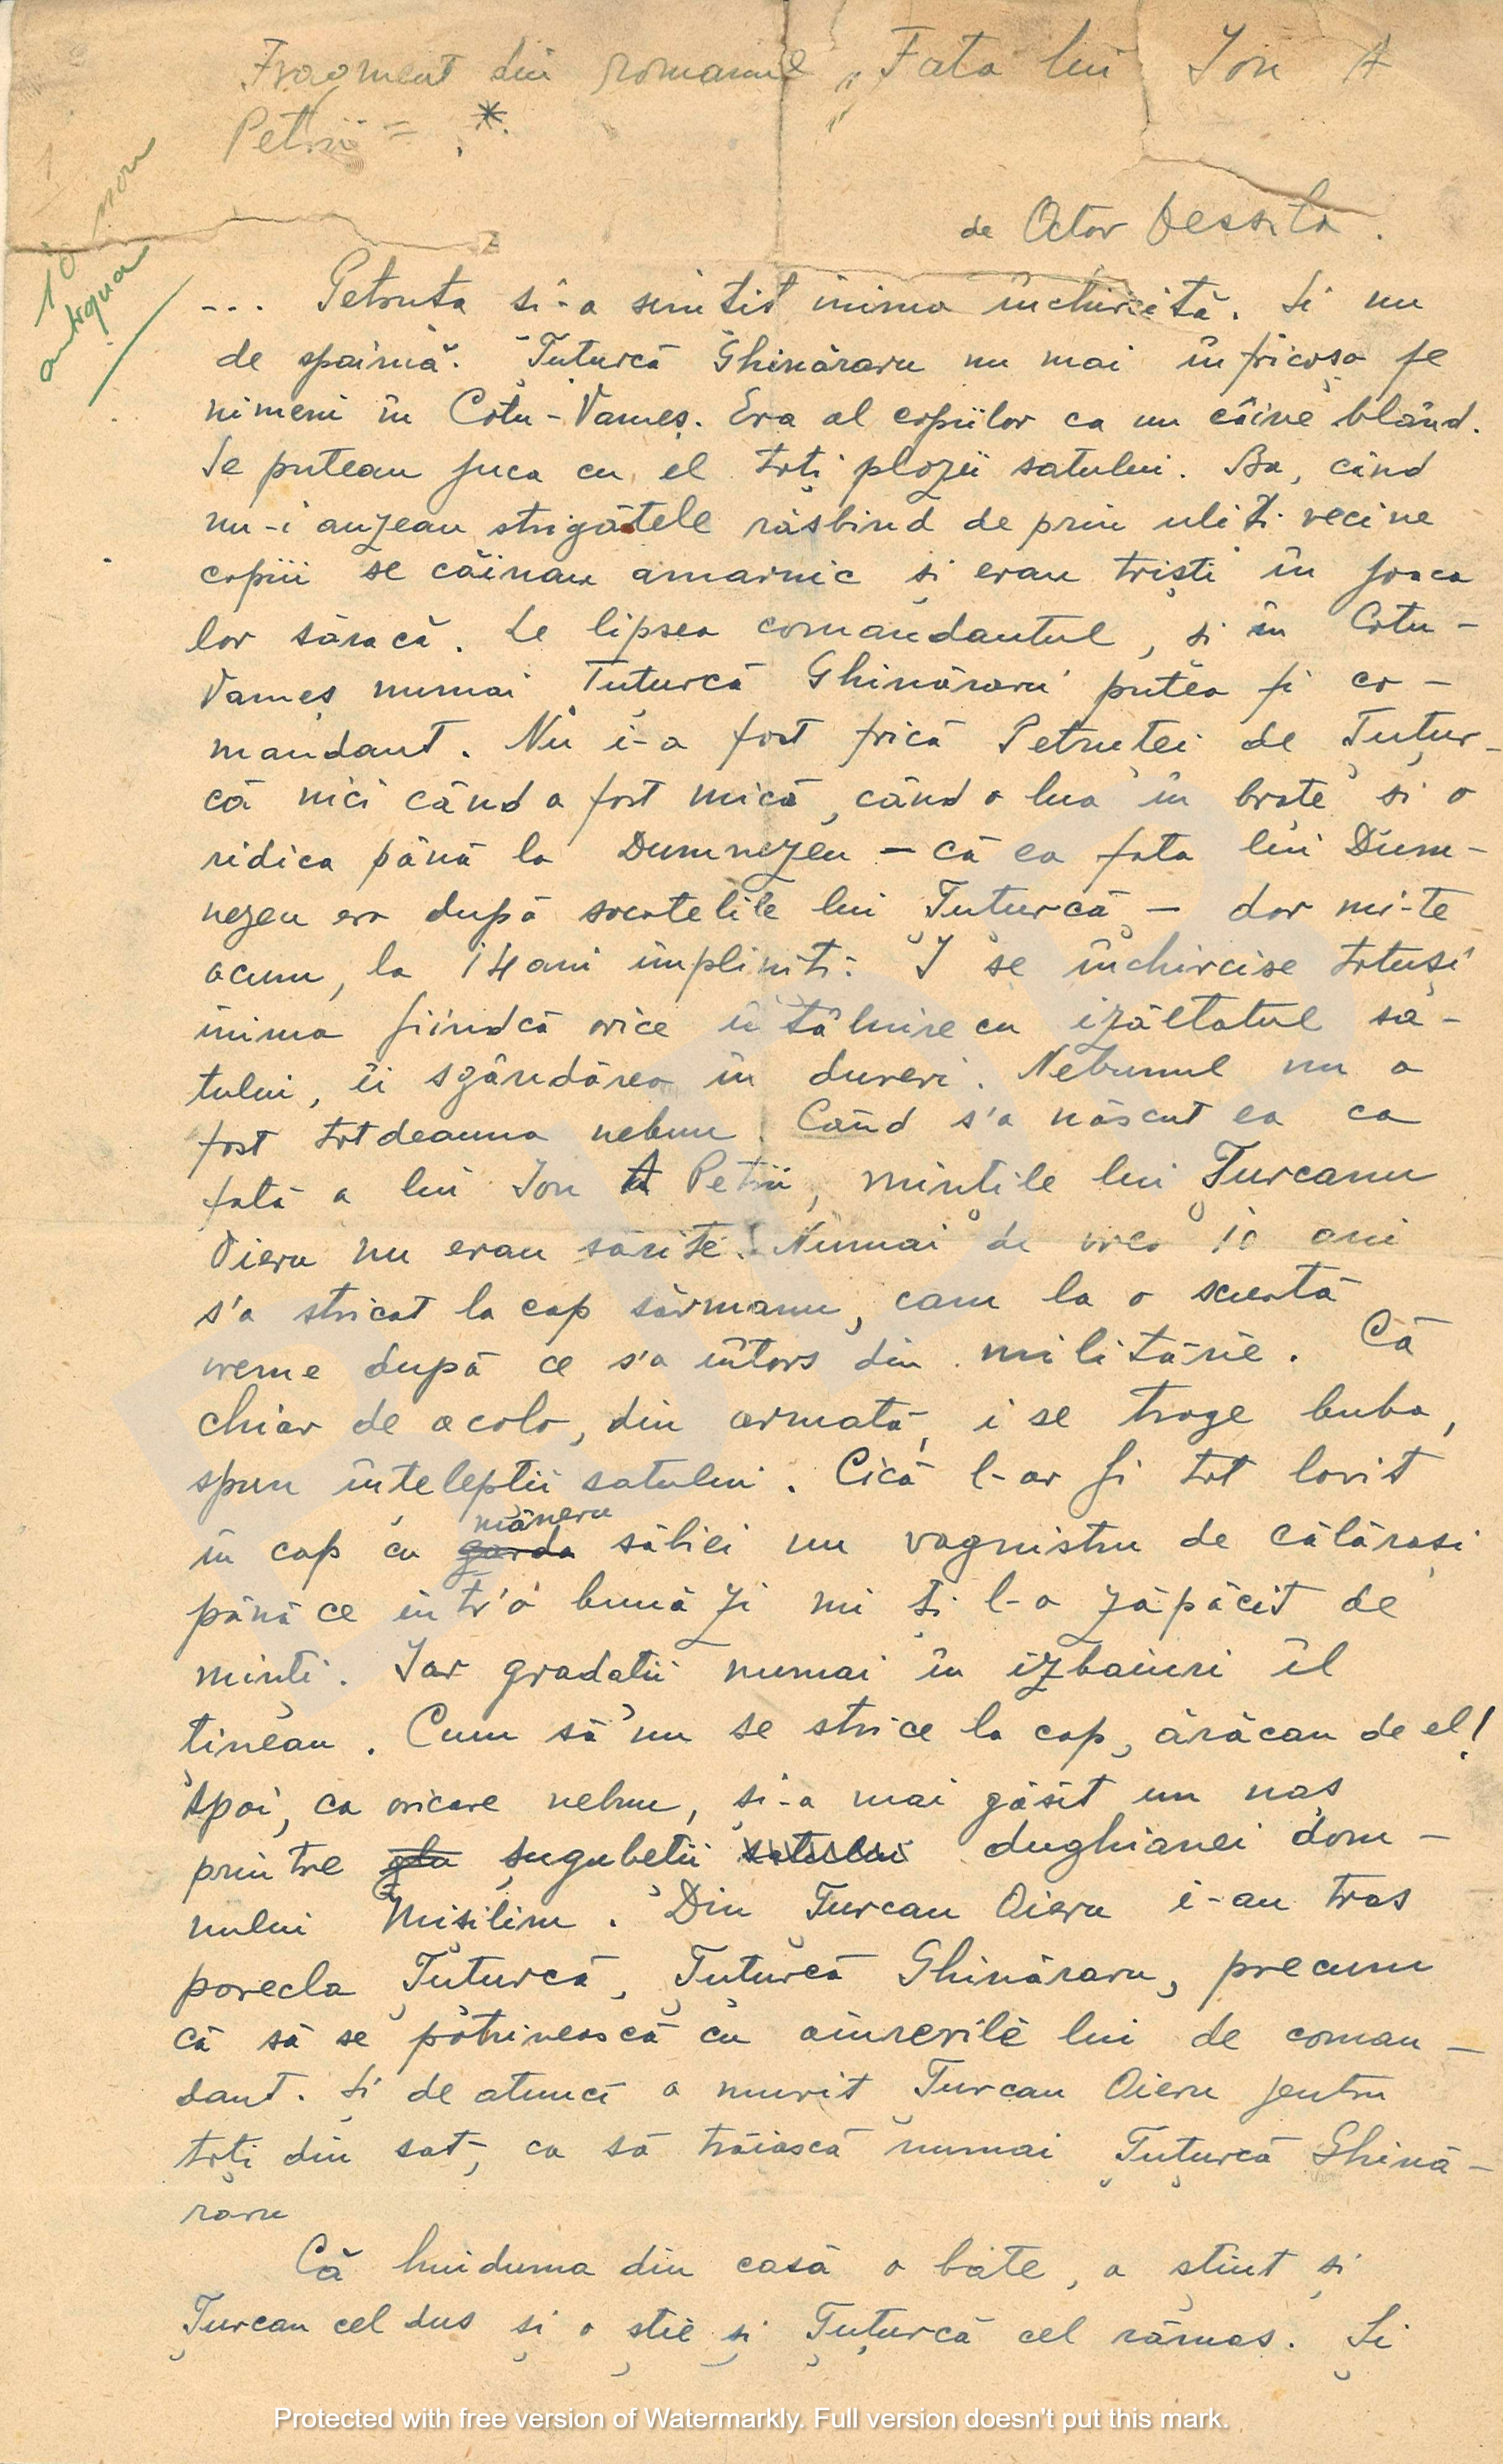 Fragment din romanul „Fata lui Ion A
Petrii" *
de Octav Dessila.
10 mon
antiqua
... Petruța și-a simțit inima închircită. Și nu
de spaimă. Țuțurcă Ghinăraru nu mai înfricoșa pe
nimeni în Cotu-Vameș. Era al copiilor ca un câine blând.
Se puteau juca cu el toți plozii satului. Ba, când
nu-i auzeau strigătele răsbind de prin uliți vecine
copiii se căinau amarnic și erau triști în joaca
lor săracă. Le lipsea comandantul, și în Cotu-
Vameș numai Țuțurcă Ghinăraru putea fi co-
mandant. Nu i-a fost frică Petruței de Țuțur-
că nici când a fost mică, când o lua în brațe și o
ridica până la Dumnezeu – că ea fata lui Dum-
nezeu era după socotelile lui Țuțurcă – dar mi-te
acum, la 14 ani împliniți. I se închircise totuși
inima fiindcă orice întâlnire cu izăltatul sa-
tului, îi sgândărea în dureri. Nebunul nu a
fost totdeauna nebun. Când s'a născut ea ca
fată a lui Ion A Petrii, mințile lui Țurcanu
Oieru nu erau sărite. Numai de vreo 10 ani
s'a stricat la cap sărmanu, cam la o scurtă
vreme după ce s'a întors din milităriе. Că
chiar de acolo, din armată, i se trage buba,
spun înțelepții satului. Cică l-ar fi tot lovit
în cap cu garda mâneru săbiei un vagmistru de călărași
până ce într'o bună zi mi ți l-a zăpăcit de
minți. Iar gradații numai în izbaituri îl
țineau. Cum să nu se strice la cap, ărăcan de el!
Apoi, ca oricare nebun, și-a mai găsit un naș
printre glu șugubeții satului dughianei dom-
nului Misilim. Din Țurcan Oieru i-au tras
porecla Țuțurcă, Țuțurcă Ghinăraru, precum
că să se potrivească cu aiurerile lui de coman-
dant. Și de atunci a murit Țurcan Oieru pentru
toți din sat, ca să trăiască numai Țuțurcă Ghină-
raru
Că huiduma din casă o bate, a știut și
Țurcan cel dus și o știe și Țuțurcă cel rămas. Și
Protected with free version of Watermarkly. Full version doesn't put this mark.